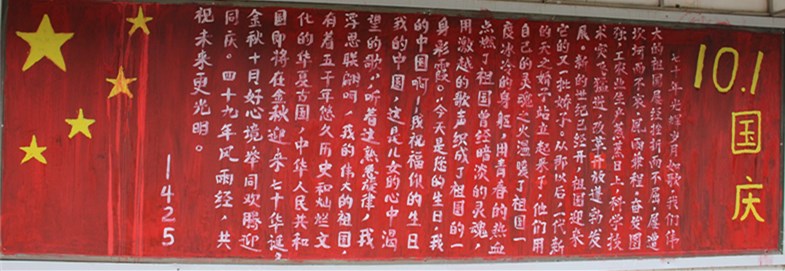 10.1
国庆
七十年光辉岁月如歌我们伟
大的祖国屡经挫折而不屈，屡遭
坎坷而不衰，风雨兼程，奋发图
强，工农业生产蒸蒸日上，科学技
术突飞猛进，改革开放道勃发
展。新的世纪已经开，祖国迎来
它的又一批娇子。从那以后，一代新
的天之娇子站立起来了，他们用
自己的灵魂之火温暖了祖国一
度冰冷的身躯，用青春的热血
点燃了祖国曾经暗淡的灵魂，
用激越的歌声织成了祖国的一
身彩霞。今天是您的生日，我
的中国啊！我祝福你的生日
我的中国，这是儿女的心中渴
望的歌，听着这熟悉旋律，我
浮思联翩呵，我的伟大的祖国，
有着五千年悠久历史和灿烂文
化的华夏古国，中华人民共和
国即将在金秋迎来七十华诞，
金秋十月好心境举同欢腾迎
同庆。四十九年风雨经，共
祝未来更光明。
1425